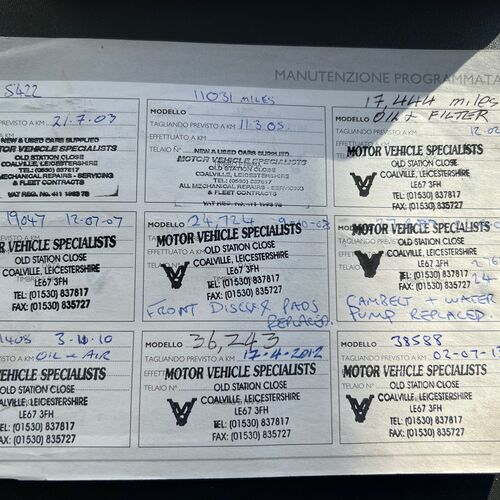 MANUTENZIONE PROGRAMMATA
5422
PREVISTO A KM 21.7.03
NEW & USED CARS SUPPLIED
MOTOR VEHICLE SPECIALISTS
OLD STATION CLOSE
COALVILLE, LEICESTERSHIRE
TEL: (01530) 837817
ALL MECHANICAL REPAIRS - SERVICING
& FLEET CONTRACTS
VAT REG. No. 411 1493 78
11031 MILES
MODELLO
TAGLIANDO PREVISTO A KM 11.3.05
EFFETTUATO A KM
TELAIO N°
NEW & USED CARS SUPPLIED
MOTOR VEHICLE SPECIALISTS
OLD STATION CLOSE
COALVILLE, LEICESTERSHIRE
ALL MECHANICAL REPAIRS - SERVICING
& FLEET CONTRACTS
17,444 miles
MODELLO OIL + FILTER
TAGLIANDO PREVISTO A KM
MOTOR VEHICLE SPECIALISTS
OLD STATION CLOSE
COALVILLE, LEICESTERSHIRE
LE67 3FH
TEL: (01530) 837817
FAX: (01530) 835727
19047 12-07-07
MOTOR VEHICLE SPECIALISTS
OLD STATION CLOSE
COALVILLE, LEICESTERSHIRE
LE67 3FH
TEL: (01530) 837817
FAX: (01530) 835727
MODELLO 24,724
MOTOR VEHICLE SPECIALISTS
OLD STATION CLOSE
COALVILLE, LEICESTERSHIRE
LE67 3FH
TEL: (01530) 837817
FAX: (01530) 835727
FRONT DISCS & PADS
REPLACED.
MODELLO
MOTOR VEHICLE SPECIALISTS
OLD STATION CLOSE
COALVILLE, LEICESTERSHIRE
LE67 3FH
TEL: (01530) 837817
FAX: (01530) 835727
CAMBELT + WATER
PUMP REPLACED
3.10.10
OIL + AIR
VEHICLE SPECIALISTS
OLD STATION CLOSE
COALVILLE, LEICESTERSHIRE
LE67 3FH
TEL: (01530) 837817
FAX: (01530) 835727
MODELLO 36,243
TAGLIANDO PREVISTO A KM 17-4-2012
MOTOR VEHICLE SPECIALISTS
TELAIO N° OLD STATION CLOSE
COALVILLE, LEICESTERSHIRE
LE67 3FH
TEL: (01530) 837817
FAX: (01530) 835727
MODELLO 38588
TAGLIANDO PREVISTO A KM 02-07-1
MOTOR VEHICLE SPECIALISTS
TELAIO N° OLD STATION CLOSE
COALVILLE, LEICESTERSHIRE
LE67 3FH
TEL: (01530) 837817
FAX: (01530) 835727